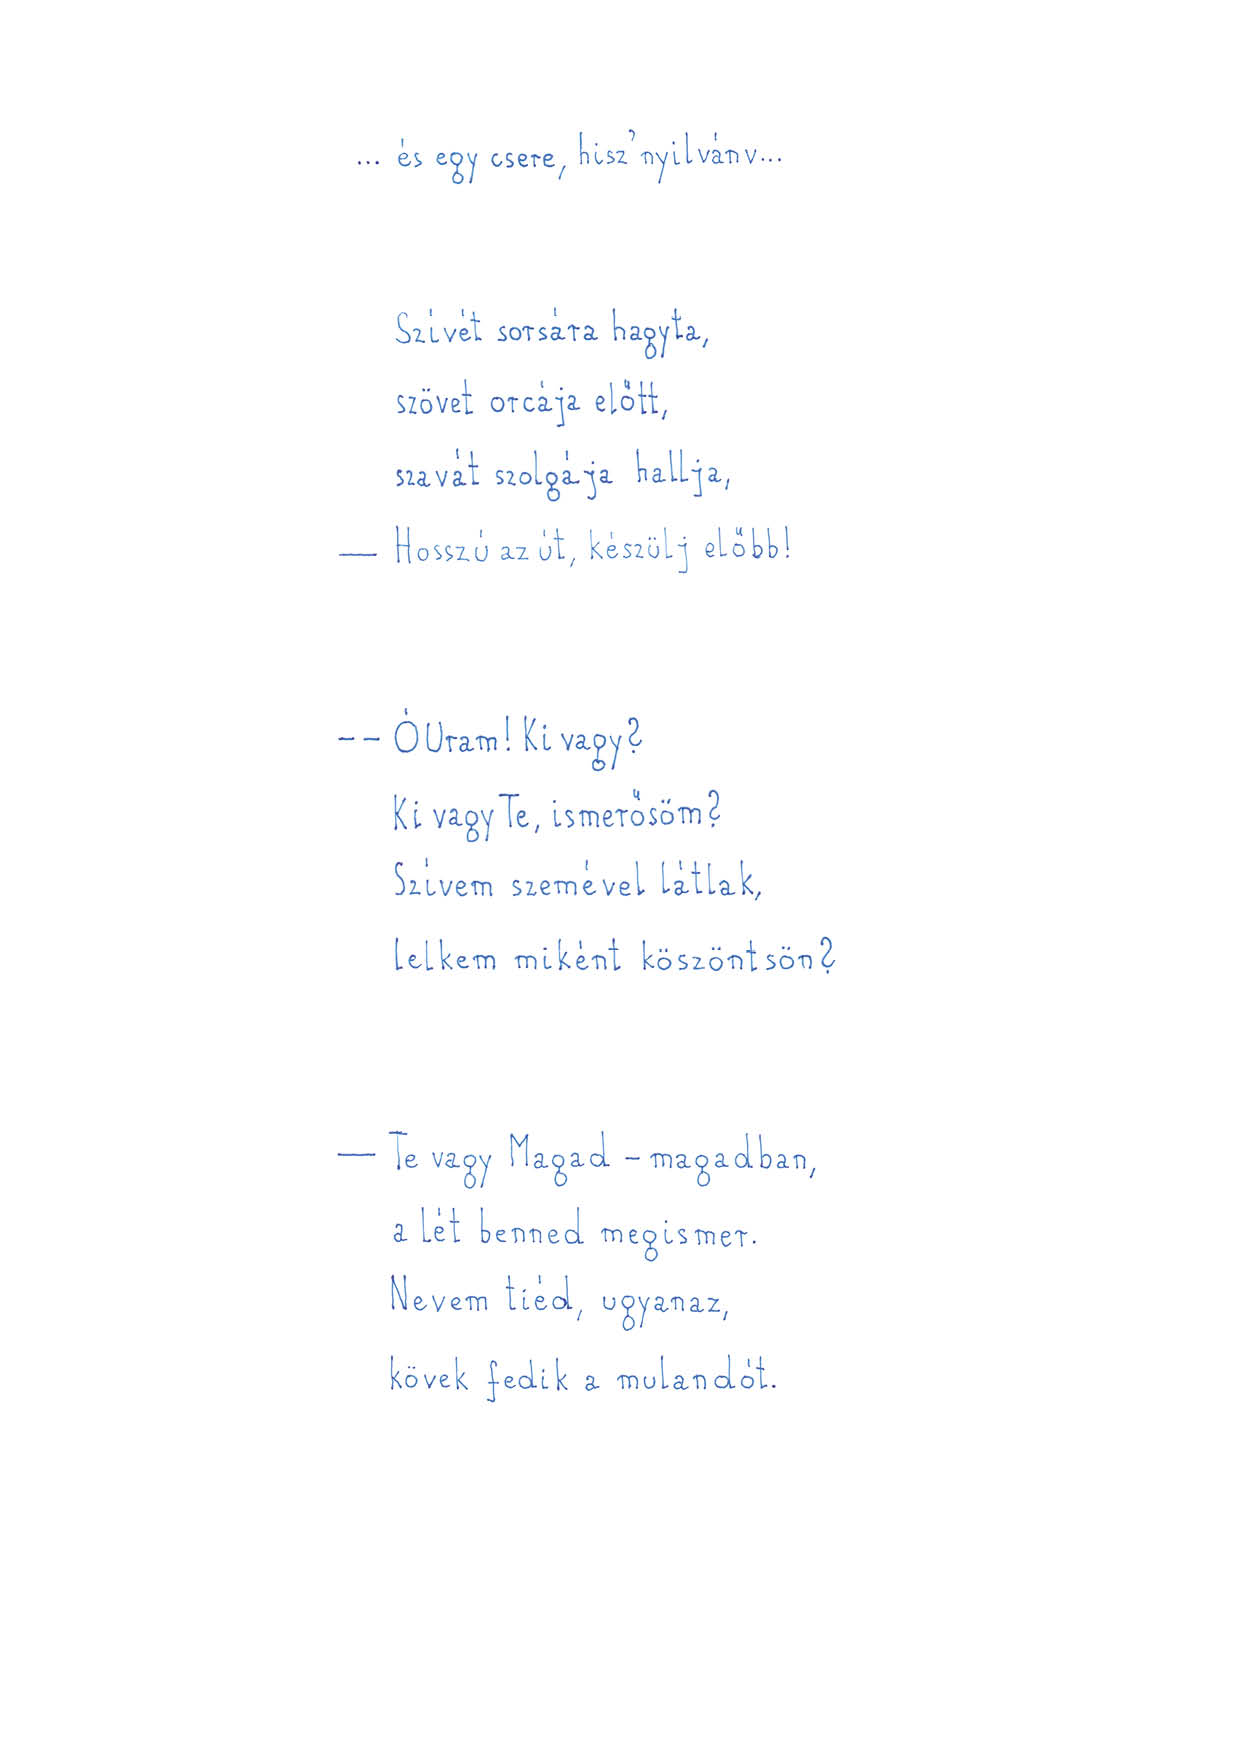 ... és egy csere, hisz' nyilvánv...
Szívét sorsára hagyta,
szövet orcája előtt,
szavát szolgája hallja,
— Hosszú az út, készülj előbb!
-- Ó Uram! Ki vagy?
Ki vagy Te, ismerősöm?
Szívem szemével látlak,
lelkem miként köszöntsön?
— Te vagy Magad - magadban,
a lét benned megismer.
Nevem tiéd, ugyanaz,
kövek fedik a mulandót.